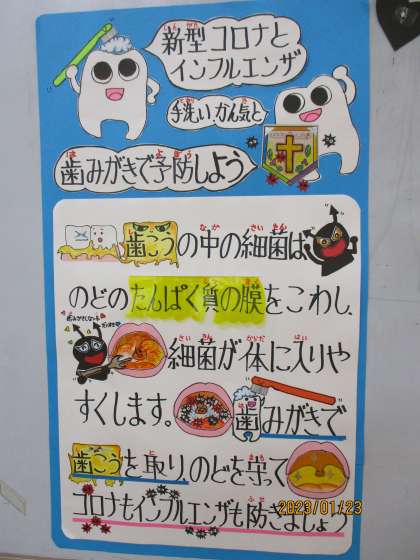 新型コロナと
インフルエンザ
手洗い、かん気と
歯みがきで予防しよう
歯こうの中の細菌は、
のどのたんぱく質の膜をこわし、
細菌が体に入りや
すくします。歯みがきで
歯こうを取り、のどを守って
コロナもインフルエンザも防ぎましょう
2023/01/23